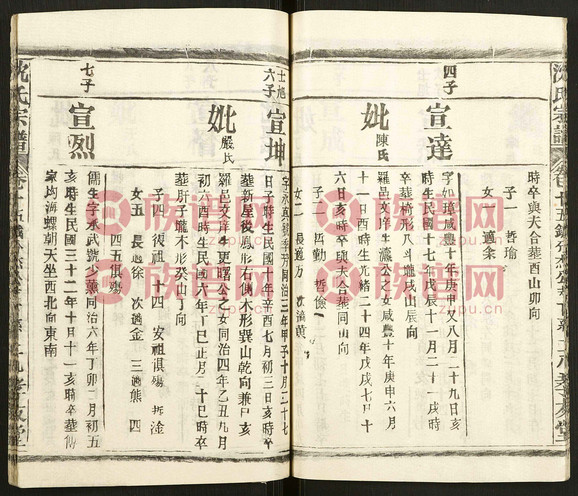 沈氏宗譜
卷
時卒與夫合葬酉山卯向
子一 哲瑜
女一 適余
四子
宣達
字如璋咸豐十年庚申又八月二十九日亥
時生民國十七年戊辰十一月二十一戌時
卒葬椅形八斗隴戌山辰向
妣
陳氏
羅邑文庠生瀛公之女咸豐十年庚申六月
十一日酉時生光緒二十四年戊戌七月十
六日亥時卒與夫合葬同山向
子二 哲勤 哲儉
女二 長適方
士旭
六子
宣坤
日子時生民國十年辛酉七月初三日亥時卒
葬新屋後鳳形右側木形巽山乾向兼巳亥
妣
嚴氏
羅邑文庠生更曙公之女同治四年乙丑九月
初六酉時生民國六年丁巳正月二十巳時卒
葬肚子壠木形癸山丁向
子四 復祖 十四 安祖俱殤 哲淦
女五 長適徐 次適金 三適熊 四
四五俱殤
七子
宣烈
儒生字承武號少薰同治六年丁卯二月初五
亥時生民國三十二年十月十一亥時卒葬傅
家坳海螺朝天坐西北向東南
沈氏宗譜
卷
族谱网
zupu.cn
族谱网
zupu.cn
族谱网
zupu.cn
族谱网
zupu.cn